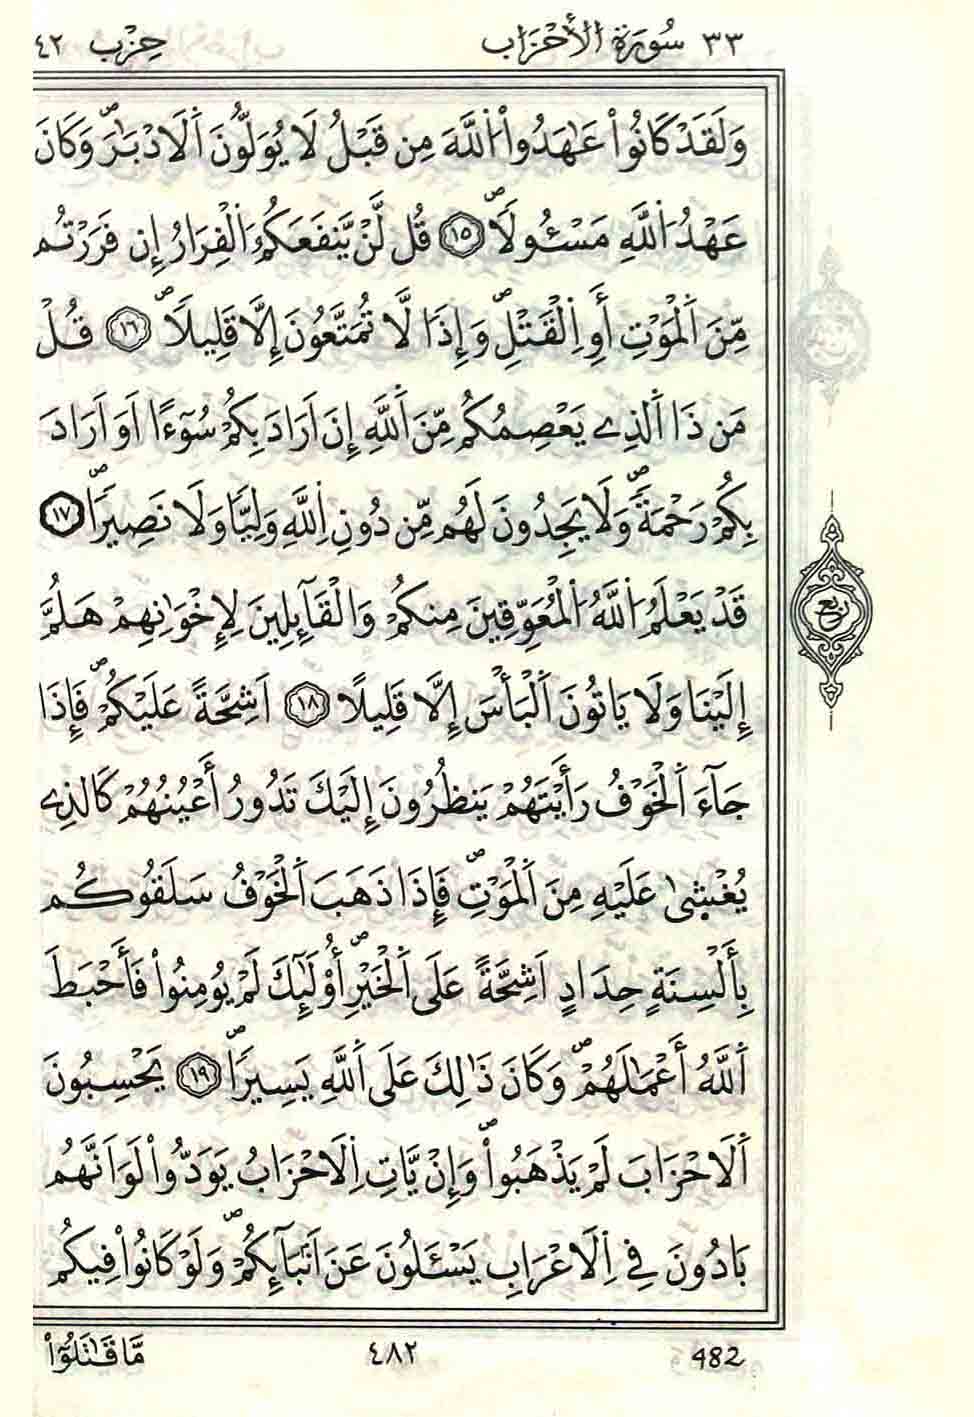 ٣٣ سُورَةُ الأَحْزَابِ حِزْب ٤٢
وَلَقَدْ كَانُواْ عَٰهَدُواْ اُ۬للَّهَ مِن قَبْلُ لَا يُوَلُّونَ اَ۬لَادْبَٰرَۖ وَكَانَ
عَهْدُ اُ۬للَّهِ مَسْـُٔولاٗۖ ١٥ قُل لَّنْ يَّنفَعَكُمُ اُ۬لْفِرَارُ إِن فَرَرْتُم
مِّنَ اَ۬لْمَوْتِ أَوِ اِ۬لْقَتْلِۖ وَإِذاٗ لَّا تُمَتَّعُونَ إِلَّا قَلِيلاٗۖ ١٦ قُلْ
مَن ذَا اَ۬لذِے يَعْصِمُكُم مِّنَ اَ۬للَّهِ إِنَ اَرَادَ بِكُمْ سُوٓءاً اَوَ اَرَادَ
بِكُمْ رَحْمَةٗۖ وَلَا يَجِدُونَ لَهُم مِّن دُونِ اِ۬للَّهِ وَلِيّاٗ وَلَا نَصِيراٗۖ ١٧
قَدْ يَعْلَمُ اُ۬للَّهُ اُ۬لْمُعَوِّقِينَ مِنكُمْ وَالْقَآئِلِينَ لِإِخْوَٰنِهِمْ هَلُمَّ
رُبُع
إِلَيْنَا وَلَا يَاتُونَ اَ۬لْبَأْسَ إِلَّا قَلِيلاً ١٨ اَشِحَّةً عَلَيْكُمْۖ فَإِذَا
جَآءَ اَ۬لْخَوْفُ رَأَيْتَهُمْ يَنظُرُونَ إِلَيْكَ تَدُورُ أَعْيُنُهُمْ كَالذِے
يُغْش۪ىٰ عَلَيْهِ مِنَ اَ۬لْمَوْتِۖ فَإِذَا ذَهَبَ اَ۬لْخَوْفُ سَلَقُوكُم
بِأَلْسِنَةٍ حِدَادٍ اَشِحَّةً عَلَى اَ۬لْخَيْرِۖ أُوْلَٰٓئِكَ لَمْ يُومِنُواْ فَأَحْبَطَ
اَ۬للَّهُ أَعْمَٰلَهُمْۖ وَكَانَ ذَٰلِكَ عَلَى اَ۬للَّهِ يَسِيراٗۖ ١٩ يَحْسِبُونَ
اَ۬لَاحْزَابَ لَمْ يَذْهَبُواْۖ وَإِنْ يَّاتِ اِ۬لَاحْزَابُ يَوَدُّواْ لَوَ اَنَّهُم
بَادُونَ فِے اِ۬لَاعْرَابِ يَسْـَٔلُونَ عَنَ اَنۢبَآئِكُمْۖ وَلَوْ كَانُواْ فِيكُم
مَّا قَٰتَلُوٓاْ ٤٨٢ 482